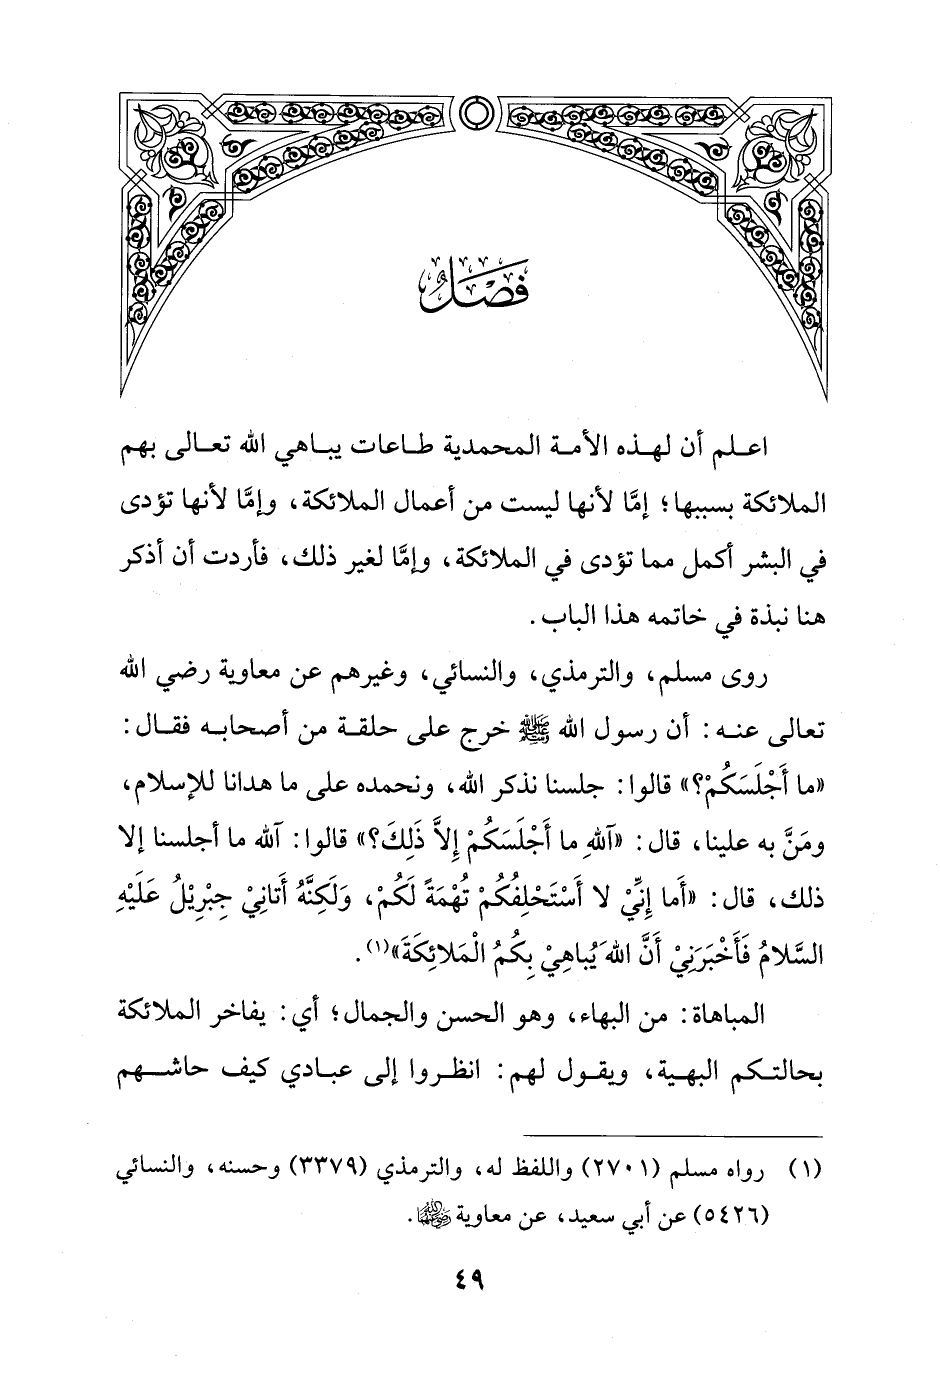 فَصْلٌ
اعلم أن لهذه الأمة المحمدية طاعات يباهي الله تعالى بهم
الملائكة بسببها؛ إمَّا لأنها ليست من أعمال الملائكة، وإمَّا لأنها تؤدى
في البشر أكمل مما تؤدى في الملائكة، وإمَّا لغير ذلك، فأردت أن أذكر
هنا نبذة في خاتمه هذا الباب.
روى مسلم، والترمذي، والنسائي، وغيرهم عن معاوية رضي الله
تعالى عنه: أن رسول الله ﷺ خرج على حلقة من أصحابه فقال:
«ما أَجْلَسَكُمْ؟» قالوا: جلسنا نذكر الله، ونحمده على ما هدانا للإسلام،
ومَنَّ به علينا، قال: «آللهِ ما أَجْلَسَكُمْ إِلاَّ ذَلِكَ؟» قالوا: آلله ما أجلسنا إلا
ذلك، قال: «أَما إِنِّيْ لا أَسْتَحْلِفُكُمْ تُهْمَةً لَكُمْ، وَلَكِنَّهُ أَتانِيْ جِبْرِيْلُ عَلَيْهِ
السَّلامُ فَأَخْبَرَنِيْ أَنَّ اللهَ يُباهِيْ بِكُمُ الْمَلائِكَةَ»(١).
المباهاة: من البهاء، وهو الحسن والجمال؛ أي: يفاخر الملائكة
بحالتكم البهية، ويقول لهم: انظروا إلى عبادي كيف حاشهم
(١) رواه مسلم (٢٧٠١) واللفظ له، والترمذي (٣٣٧٩) وحسنه، والنسائي
(٥٤٢٦) عن أبي سعيد، عن معاوية رضي الله عنهما.
٤٩